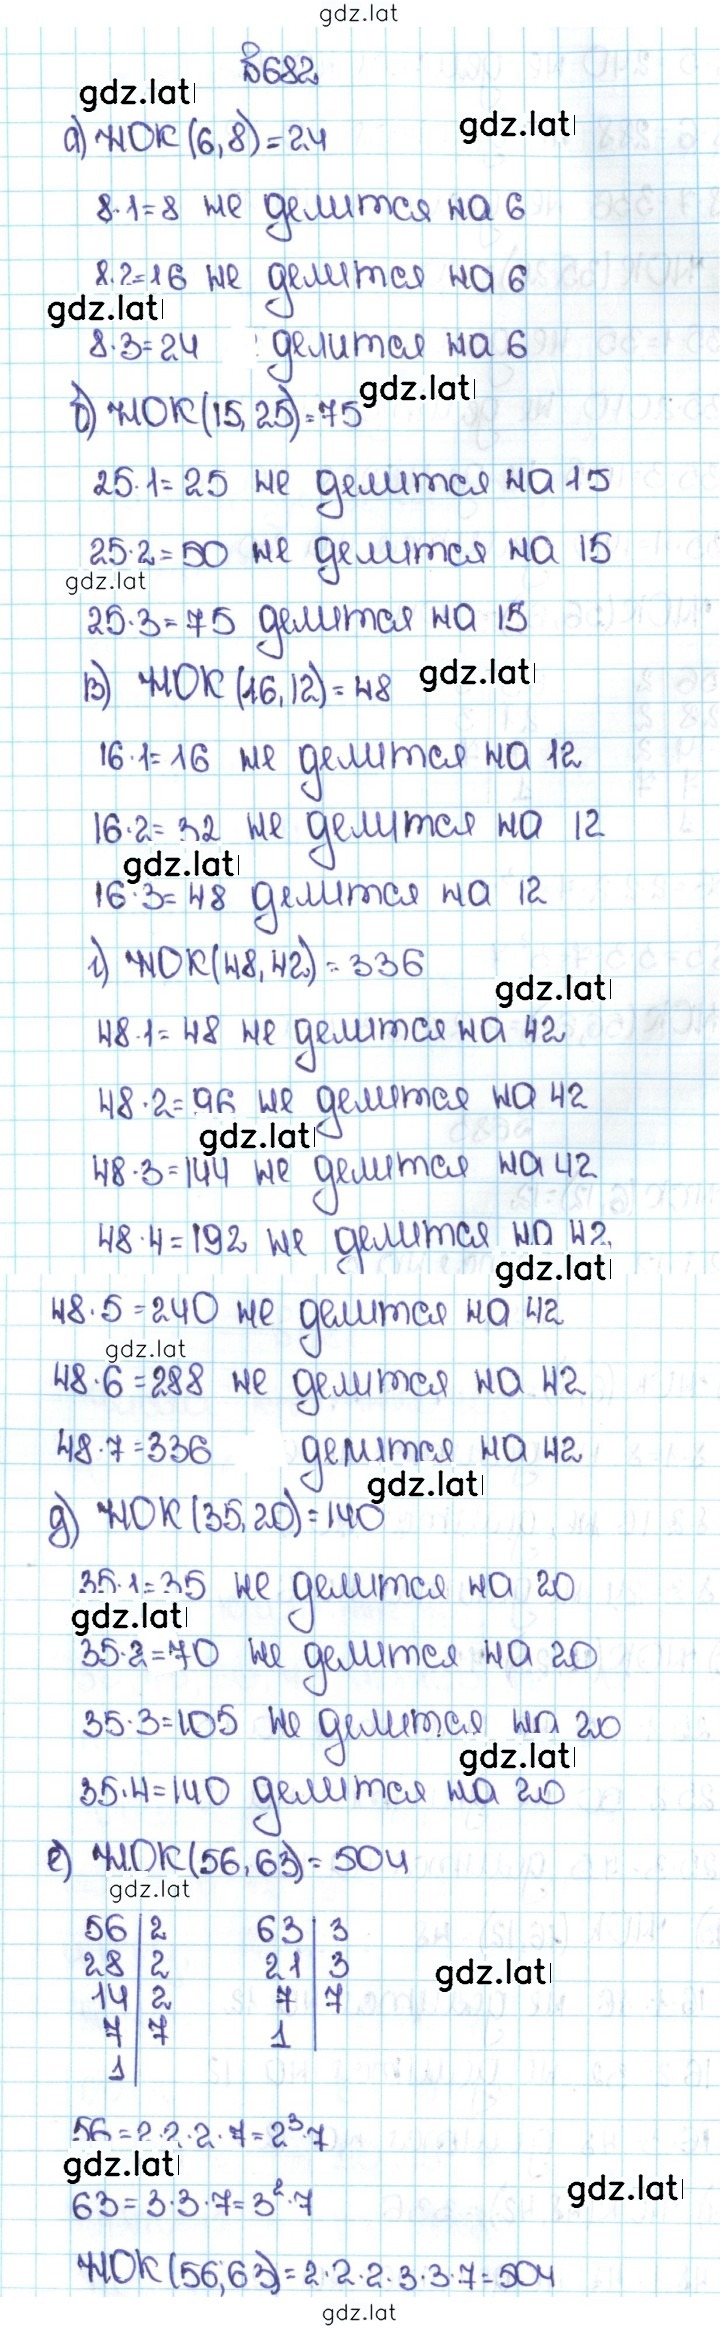 gdz.lat
№682
gdz.lat
gdz.lat
а) НОК (6,8)=24
8·1=8 не делится на 6
8·2=16 не делится на 6
gdz.lat
8·3=24 делится на 6
gdz.lat
б) НОК(15,25)=75
25·1=25 не делится на 15
25·2=50 не делится на 15
gdz.lat
25·3=75 делится на 15
gdz.lat
в) НОК (16,12)=48
16·1=16 не делится на 12
16·2=32 не делится на 12
gdz.lat
16·3=48 делится на 12
г) НОК(48,42)=336
gdz.lat
48·1=48 не делится на 42
48·2=96 не делится на 42
gdz.lat
48·3=144 не делится на 42
48·4=192 не делится на 42
gdz.lat
48·5=240 не делится на 42
gdz.lat
48·6=288 не делится на 42
48·7=336 делится на 42
gdz.lat
д) НОК (35,20)=140
35·1=35 не делится на 20
gdz.lat
35·2=70 не делится на 20
35·3=105 не делится на 20
gdz.lat
35·4=140 делится на 20
е) НОК(56,63)=504
gdz.lat
56|2 63|3
28|2 21|3
gdz.lat
14|2 7|7
7|7 1|
1|
56=2·2·2·7=2³·7
gdz.lat
gdz.lat
63=3·3·7=3²·7
НОК(56,63)=2·2·2·3·3·7=504
gdz.lat